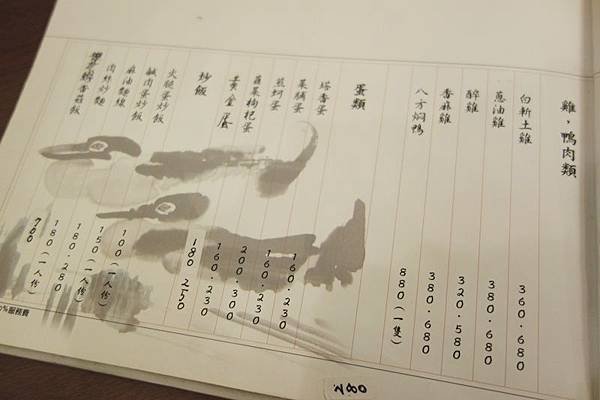 雞，鴨肉類
白斬土雞 360.680
蔥油雞 380.680
醉雞 320.580
香麻雞 380.680
八方焖鴨 880(一隻)
蛋類
塔香蛋 160.230
菜脯蛋 160.230
煎蚵蛋 200.300
韭菜枸杞蛋 160.230
黃金蛋 180 250
炒飯
火腿蛋炒飯 100(一人份)
鹹肉蛋炒飯 150(一人份)
麻油麵線 180.280
肉絲炒麵 180(一人份)
香菇飯 700
%服務費